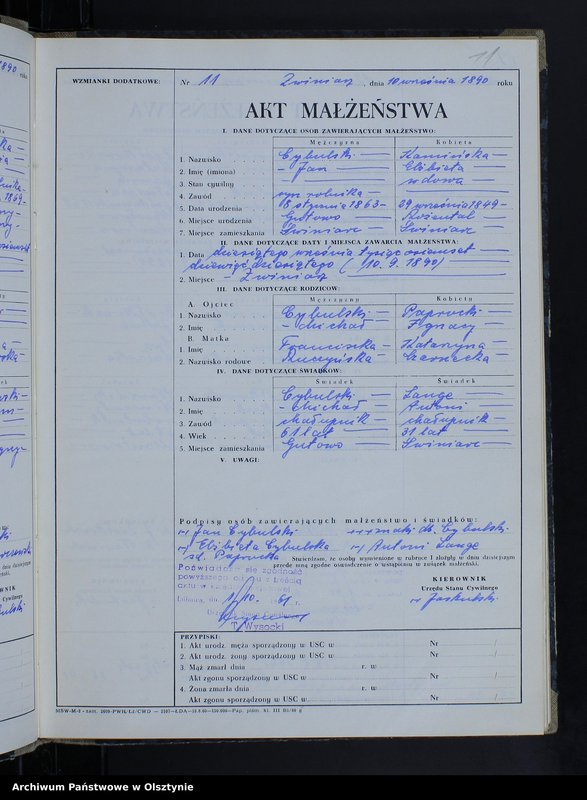 11
WZMIANKI DODATKOWE:
Nr 11 Zwiniarz, dnia 10 września 1890 roku
AKT MAŁŻEŃSTWA
I. DANE DOTYCZĄCE OSÓB ZAWIERAJĄCYCH MAŁŻEŃSTWO:
Mężczyzna Kobieta
1. Nazwisko Cybulski Kamińska
2. Imię (imiona) Jan Elżbieta
3. Stan cywilny — wdowa
4. Zawód syn rolnika —
5. Data urodzenia 18 stycznia 1863 29 września 1849
6. Miejsce urodzenia Gutowo Rożental
7. Miejsce zamieszkania Swiniarc Swiniarc
II. DANE DOTYCZĄCE DATY I MIEJSCA ZAWARCIA MAŁŻEŃSTWA:
1. Data dziesiątego września tysiąc osiemset
dziewięćdziesiątego (10. 9. 1890)
2. Miejsce Zwiniarz
III. DANE DOTYCZĄCE RODZICÓW:
Mężczyzny Kobiety
A. Ojciec
1. Nazwisko Cybulski Paprocki
2. Imię Michał Ignacy
B. Matka
1. Imię Franciszka Katarzyna
2. Nazwisko rodowe Ruczyńska
IV. DANE DOTYCZĄCE ŚWIADKÓW:
Świadek Świadek
1. Nazwisko Cybulski Lange
2. Imię Michał Antoni
3. Zawód chałupnik chałupnik
4. Wiek 61 lat 31 lat
5. Miejsce zamieszkania Gutowo Swiniarc
V. UWAGI:
Podpisy osób zawierających małżeństwo i świadków:
Jan Cybulski +++ znaki db. Cybulski
Elżbieta Cybulska Antoni Lange
zd. Paprocka
Stwierdzam, że osoby wymienione w rubryce I złożyły w dniu dzisiejszym
przede mną zgodne oświadczenie o wstąpieniu w związek małżeński.
Poświadcza się zgodność
powyższego odpisu z treścią
aktu w
Lubawa, dn. 1/10. 1961 r.
KIEROWNIK
Urzędu Stanu Cywilnego
Jaskulski
T. Wysocki
PRZYPISKI:
1. Akt urodz. męża sporządzony w USC w Nr /
2. Akt urodz. żony sporządzony w USC w Nr /
3. Mąż zmarł dnia r. w
Akt zgonu sporządzony w USC w Nr /
4. Żona zmarła dnia r. w
Akt zgonu sporządzony w USC w Nr /
Archiwum Państwowe w Olsztynie